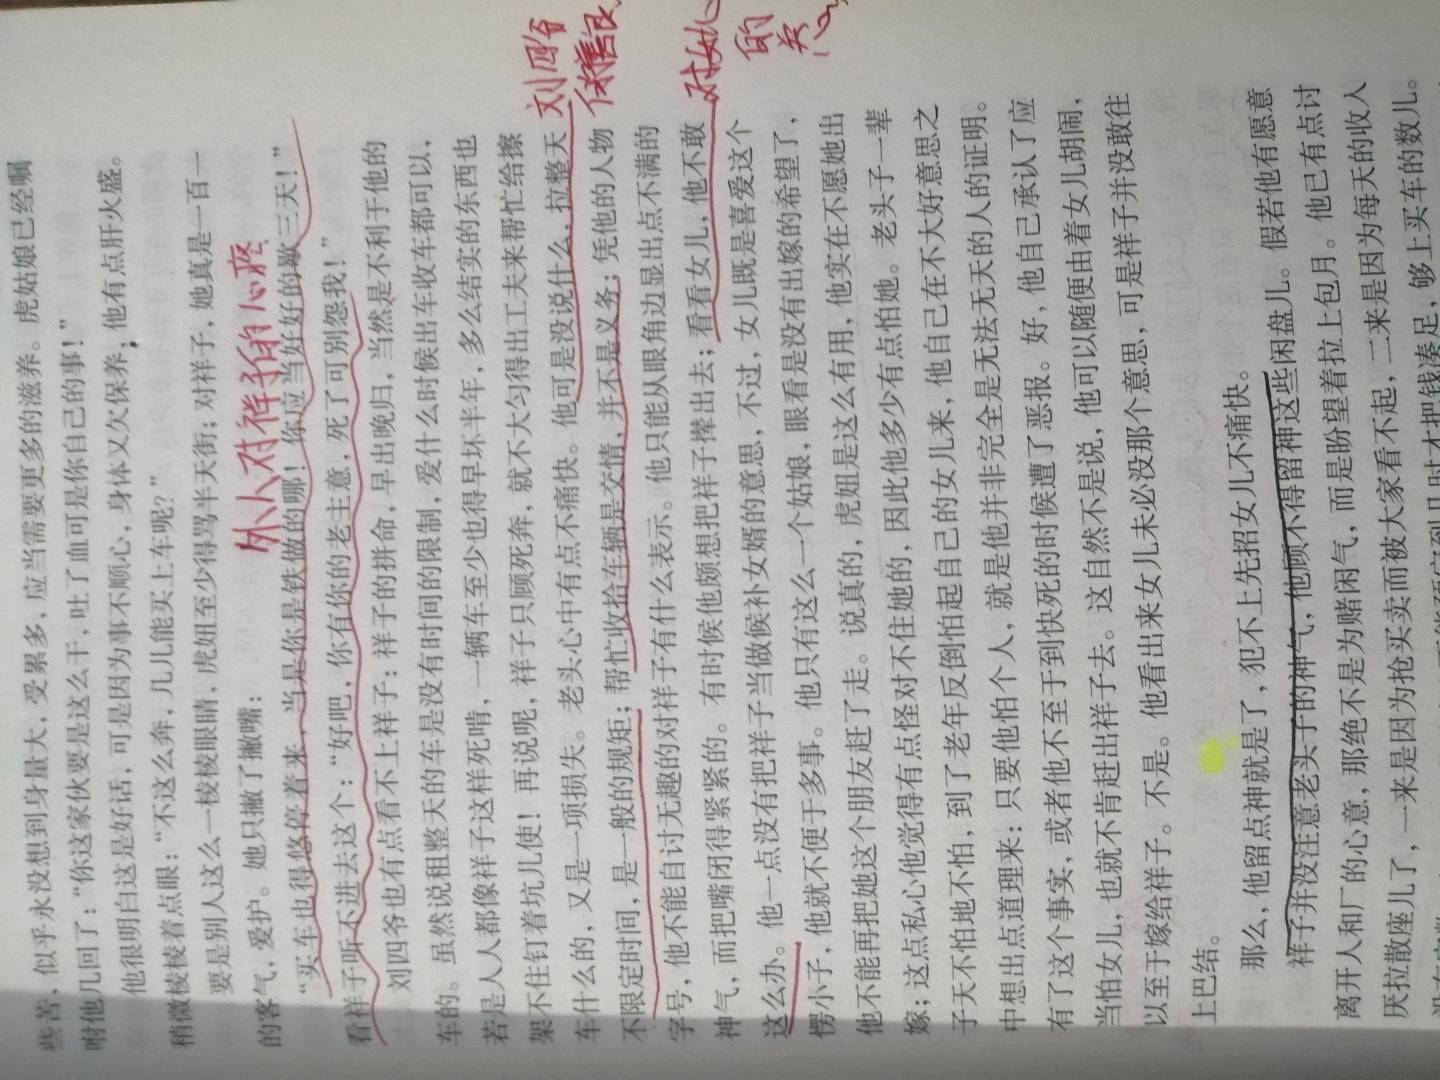 些苦，似乎永没想到身量大，受累多，应当需要更多的滋养。虎姑娘已经嘱
咐他几回了：“你这家伙要是这么干，吐了血可是你自己的事！”
他很明白这是好话，可是因为事不顺心，身体又欠保养，他有点肝火盛。
稍微棱棱着点眼：“不这么奔，几儿能买上车呢？”
要是别人这么一棱棱眼睛，虎妞至少得骂半天街；对祥子，她真是一百一
的客气，爱护。她只撇了撇嘴：
外人对祥子的心疼
“买车也得悠停着来，当是你是铁做的哪！你应当好好的歇三天！”
看祥子听不进去这个：“好吧，你有你的老主意，死了可别怨我！”
刘四爷也有点看不上祥子：祥子的拼命，早出晚归，当然是不利于他的
车的。虽然说租整天的车是没有时间的限制，爱什么时候出车收车都可以，
若是人人都像祥子这样死啃，一辆车至少也得早坏半年，多么结实的东西也
架不住钉着坑儿使！再说呢，祥子只顾死奔，就不大匀得出工夫来帮忙给擦
车什么的，又是一项损失。老头心中有点不痛快。他可是没说什么，拉整天
刘四爷
不限定时间，是一般的规矩；帮忙收拾车辆是交情，并不是义务；凭他的人物
字号，他不能自讨无趣的对祥子有什么表示。他只能从眼角边显出点不满的
神气，而把嘴闭得紧紧的。有时候他颇想把祥子撵出去；看看女儿，他不敢
对她
的
这么办。他一点没有把祥子当做候补女婿的意思，不过，女儿既是喜爱这个
愣小子，他就不便于多事。他只有这么一个姑娘，眼看是没有出嫁的希望了，
他不能再把她这个朋友赶了走。说真的，虎妞是这么有用，他实在不愿她出
嫁；这点私心他觉得有点怪对不住她的，因此他多少有点怕她。老头子一辈
子天不怕地不怕，到了老年反倒怕起自己的女儿来，他自己在不大好意思之
中想出点道理来：只要他怕个人，就是他并非完全是无法无天的人的证明。
有了这个事实，或者他不至于到快死的时候遭了恶报。好，他自己承认了应
当怕女儿，也就不肯赶出祥子去。这自然不是说，他可以随便由着女儿胡闹，
以至于嫁给祥子。不是。他看出来女儿未必没那个意思，可是祥子并没敢往
上巴结。
那么，他留点神就是了，犯不上先招女儿不痛快。
祥子并没注意老头子的神气，他顾不得留神这些闲盘儿。假若他有愿意
离开人和厂的心意，那绝不是为赌闲气，而是盼望着拉上包月。他已有点讨
厌拉散座儿了，一来是因为抢买卖而被大家看不起，二来是因为每天的收入